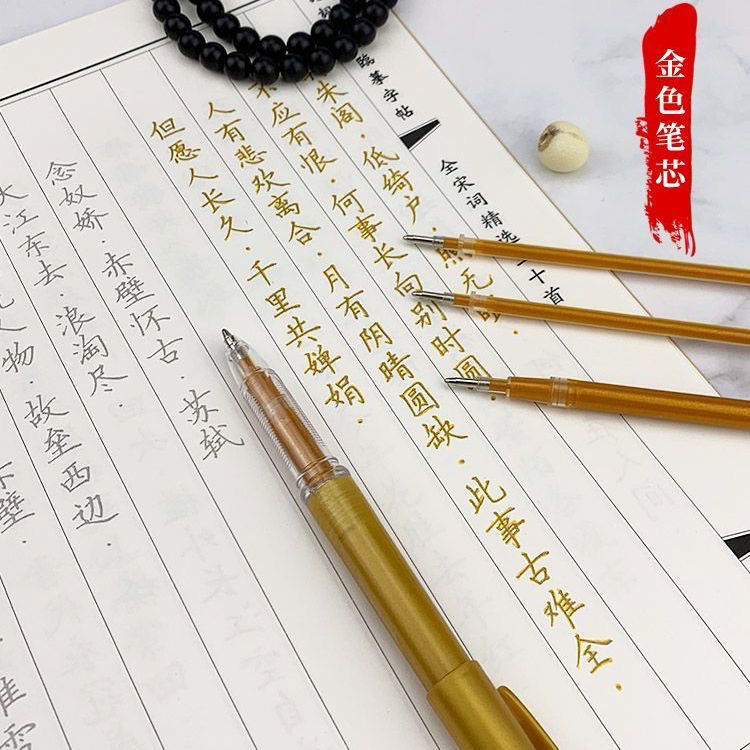 金色笔芯
臨摹字帖
全宋词精选二十首
朱阁.低绮户.照无眠
不应有恨.何事长向别时圆.
人有悲欢离合.月有阴晴圆缺.此事古难全.
但愿人长久.千里共婵娟.
念奴娇.赤壁怀古.苏轼
大江东去.浪淘尽.
人物.故垒西边.
壁.
雪